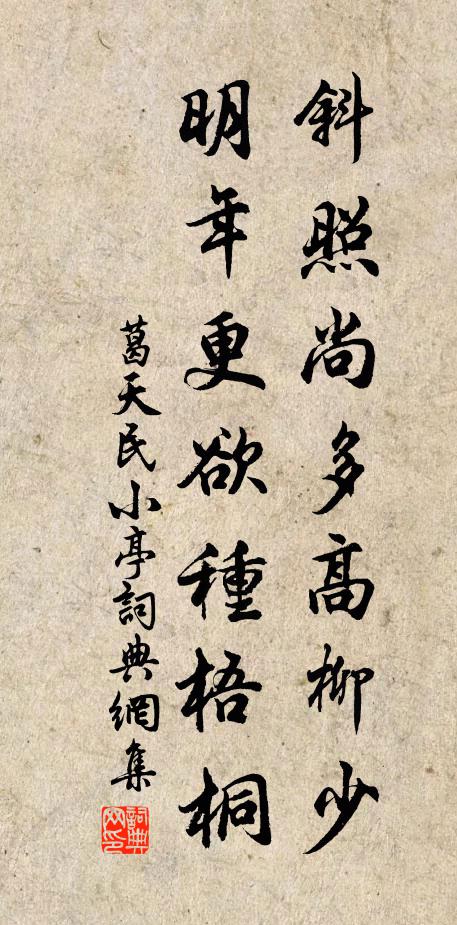 斜照尚多高柳少
明年更欲種梧桐
葛天民小亭詞典網集
詞典网印